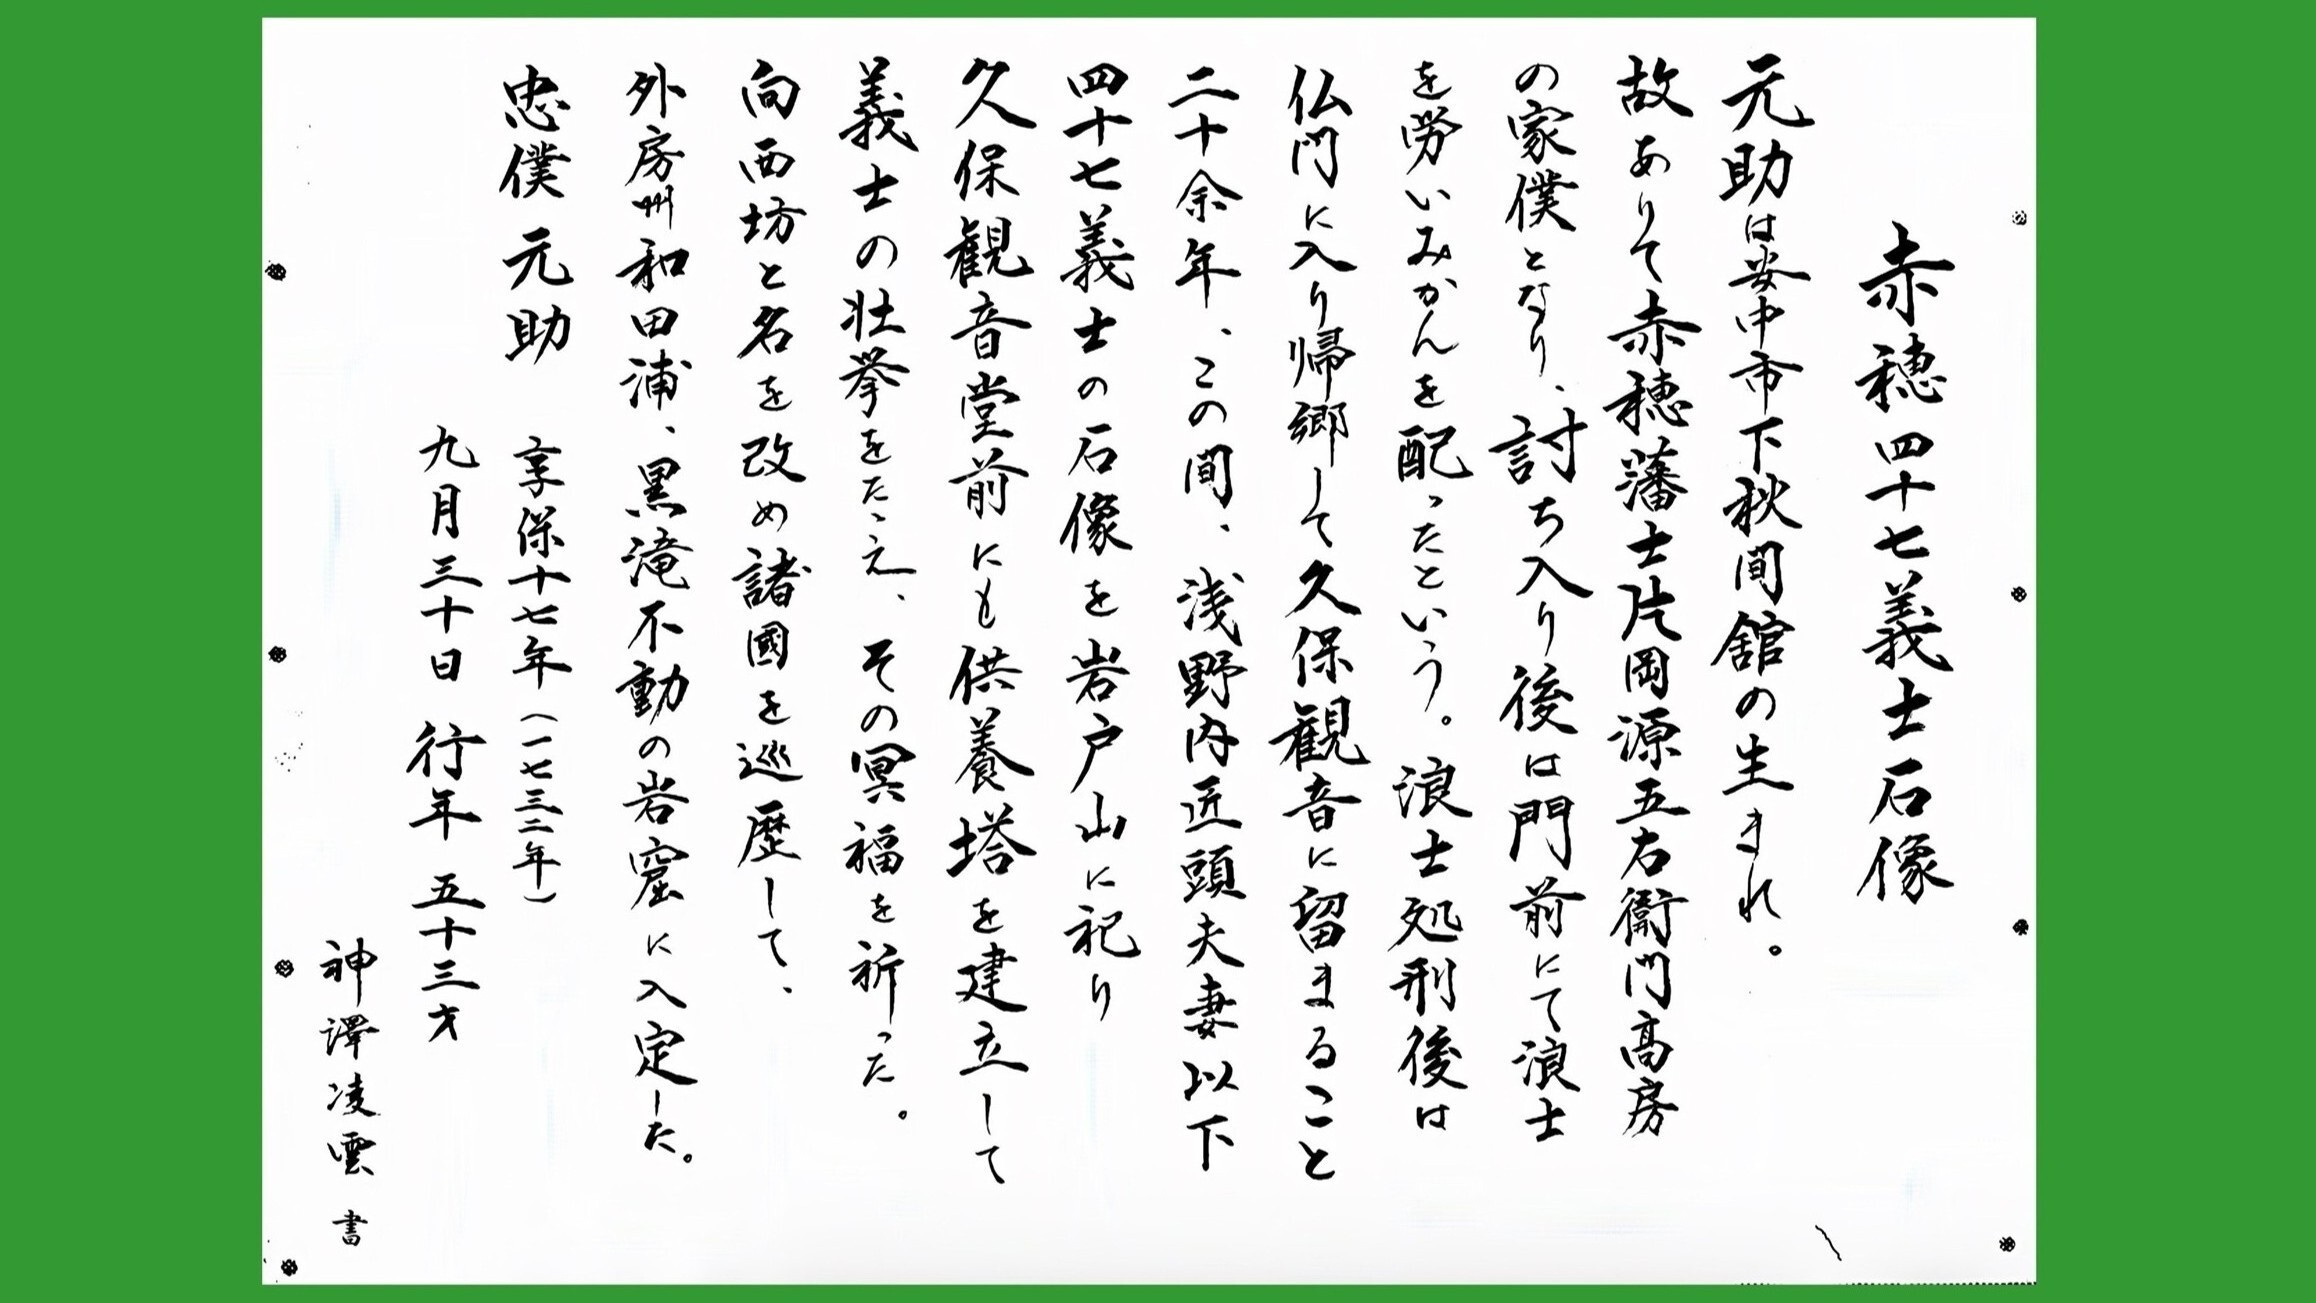 赤穂四十七義士石像
元助は安中市下秋間舘の生まれ。
故ありて赤穂藩士片岡源五右衞門高房
の家僕となり、討ち入り後は門前にて浪士
を労いみかんを配ったという。浪士処刑後は
仏門に入り帰郷して久保観音に留まること
二十余年、この間、浅野内匠頭夫妻以下
四十七義士の石像を岩戸山に祀り
久保観音堂前にも供養塔を建立して
義士の壮挙をたゝえ、その冥福を祈った。
向西坊と名を改め諸國を巡歴して、
外房州和田浦、黒滝不動の岩窟に入定した。
忠僕元助 享保十七年(一七三二年)
九月三十日 行年 五十三才
神澤凌雲 書